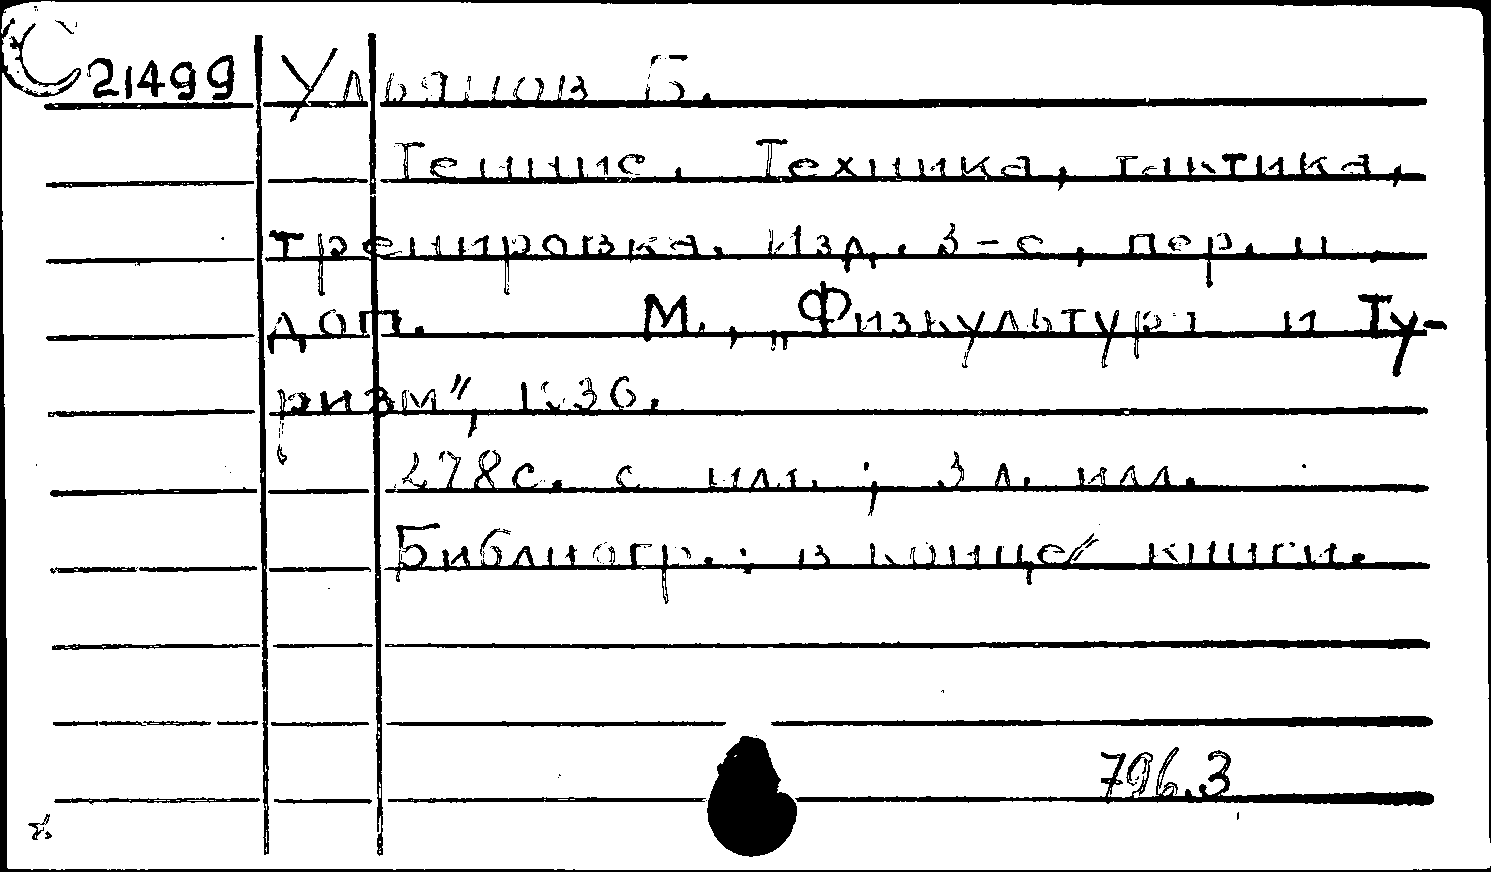 С 21499 Ульянов Б.
Теннис. Техника, тактика,
тренировка. Изд. 3-е, пер. и
доп. М., „Физкультура и Ту-
ризм", 1936.
278с. с илл. ; 3 л. илл.
Библиогр.: в конце книги.
796.3